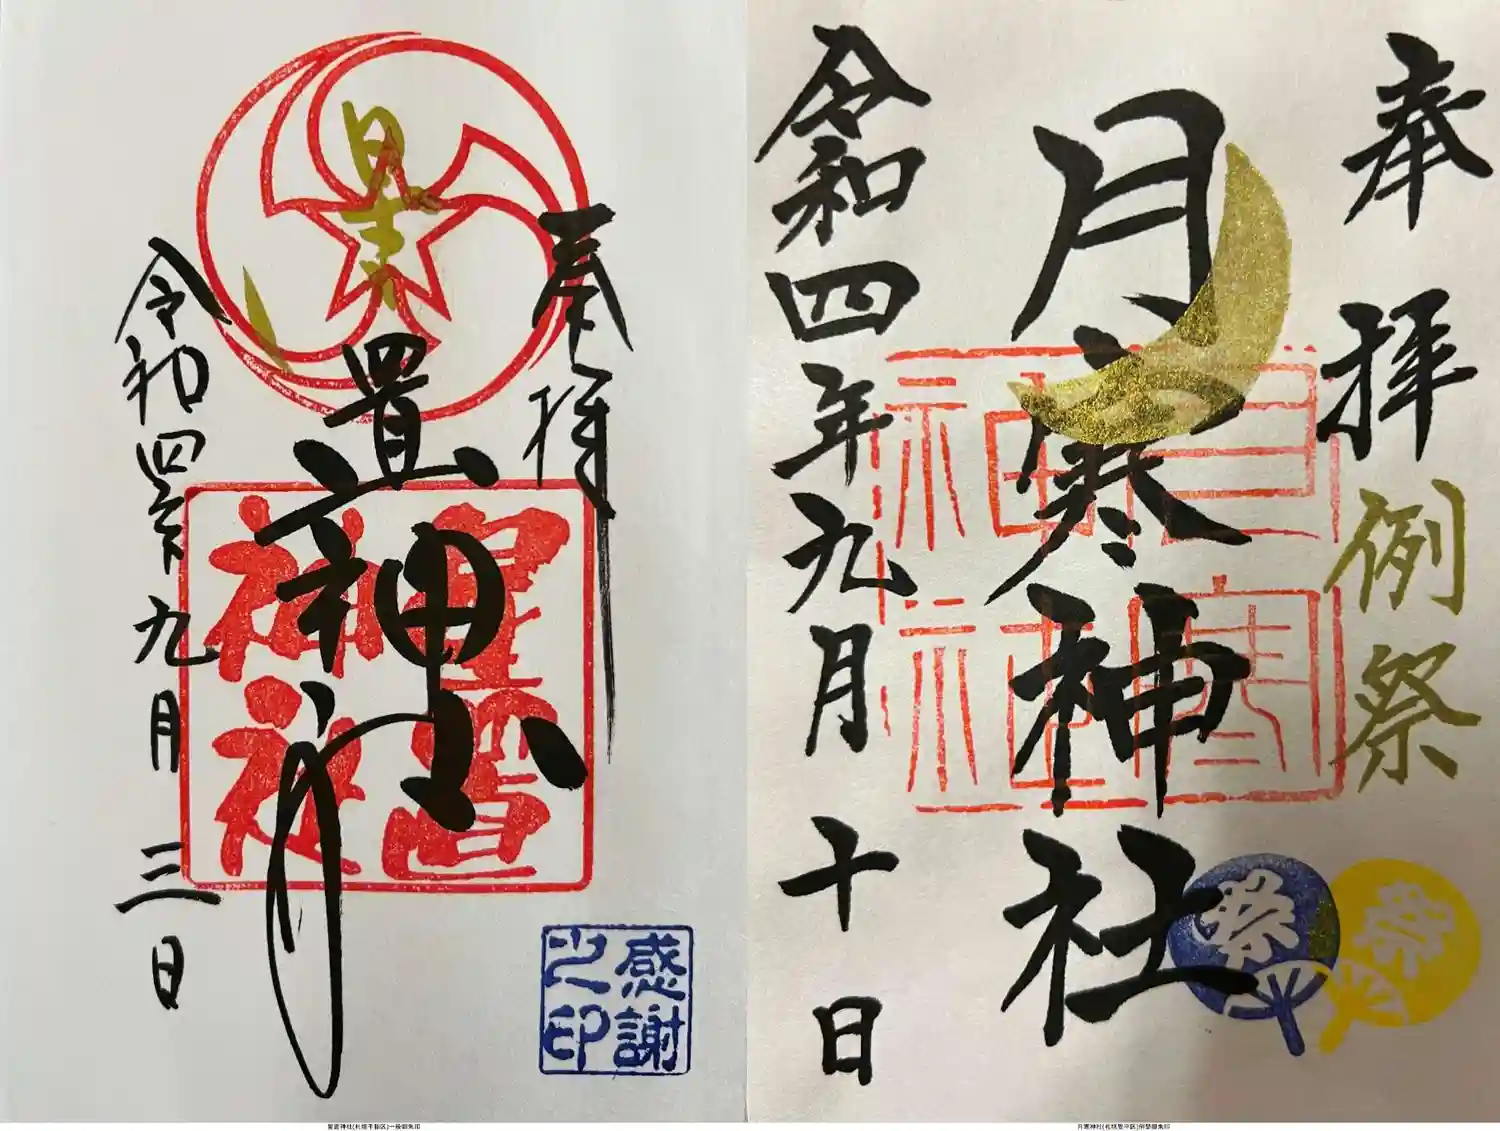 奉拝
星置神社
令和四年九月三日
星置
神社
感謝
之印
奉拝
例祭
月寒神社
令和四年九月十日
月寒
神社
祭
祭
星置神社(札幌手稲区)一般御朱印
月寒神社(札幌豊平区)例祭御朱印